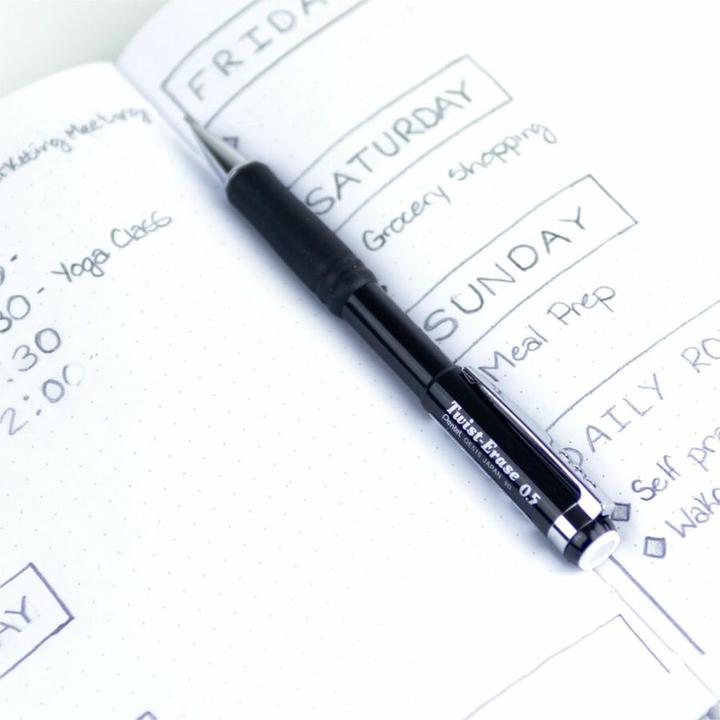 Marketing Meeting
- Yoga Class
:30
2:00
AY
FRIDA
SATURDAY
Grocery Shopping
SUNDAY
Meal Prep
DAILY RO
Self pra
Wake
Twist-Erase 0.5
Pentel QE515 JAPAN